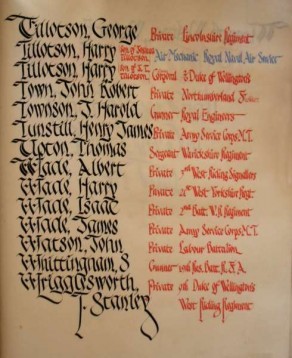 Tillotson, George Private Lincolnshire Regiment
Tillotson, Harry son of Joshua Tillotson. Air Mechanic Royal Naval Air Service
Tillotson, Harry son of Tillotson. Corporal Duke of Wellington's
Town, John Robert Private Northumberland
Townson, J. Harold Gunner Royal Engineers
Tunstill, Henry James Private Army Service Corps M.T.
Upton, Thomas Sergeant Warickshire Regiment
Wade, Albert Private West Riding Signallers
Wade, Harry Private 21st West Yorkshire Regt.
Wade, Isaac Private 2nd Batt. W. R. Regiment
Wade, James Private Army Service Corps M.T.
Watson, John Private Labour Battalion
Whittingham, S Gunner Res. Batt. R. F. A
Wrigglesworth, Private 9th Duke of Wellington's
J. Stanley West Riding Regiment